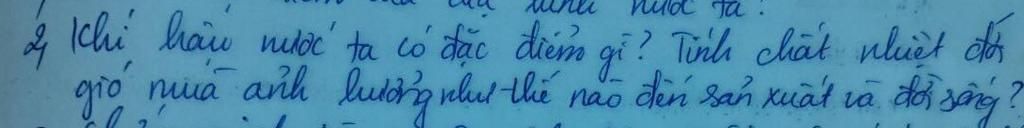 2, Khí hậu nước ta có đặc điểm gì? Tính chất nhiệt đới
gió mùa ảnh hưởng như thế nào đến sản xuất và đời sống?